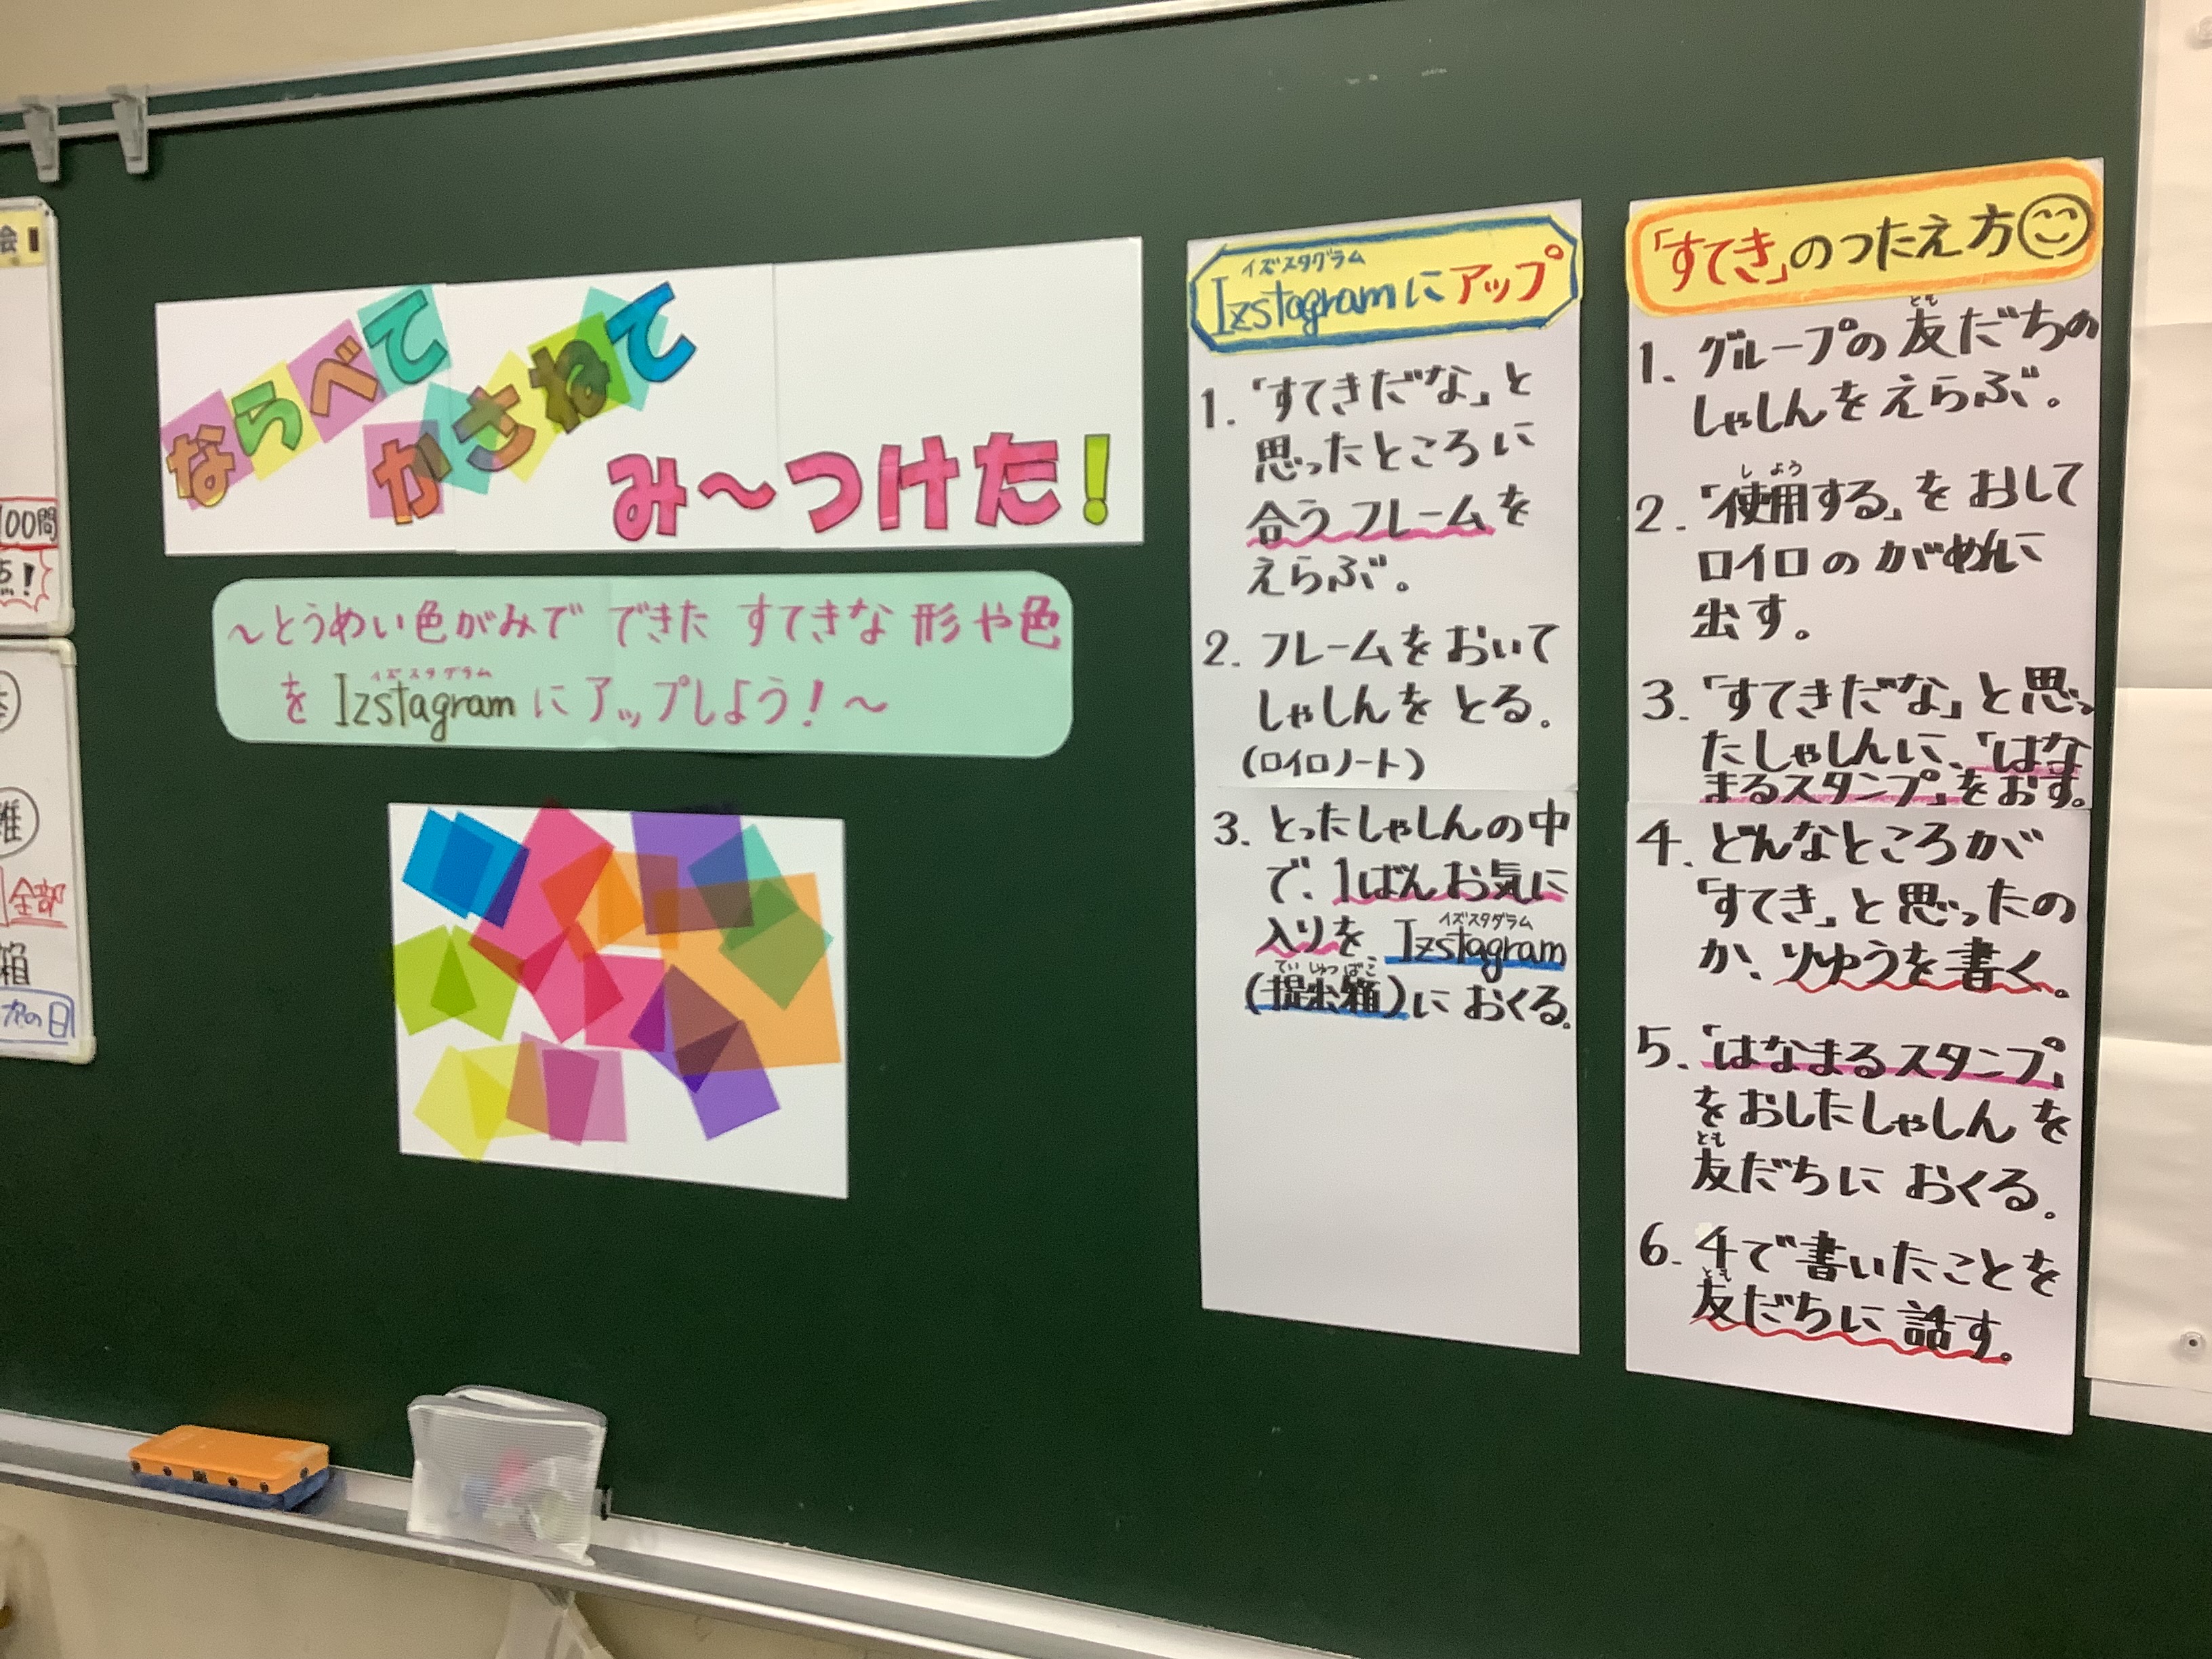 ならべて
かさねて
み〜つけた!
〜とうめい色がみで できた すてきな 形や色
イズスタグラム
を Izstagram に アップしよう!〜
イズスタグラム
Izstagramにアップ
1.「すてきだな」と
思ったところに
合うフレームを
えらぶ。
2. フレームをおいて
しゃしんを とる。
(ロイロノート)
3. とったしゃしんの中
で、1ばんお気に
イズスタグラム
入りを Izstagram
ていしゅつばこ
(提出箱)に おくる。
「すてき」のつたえ方
とも
1. グループの友だちの
しゃしんをえらぶ。
しよう
2.「使用する」をおして
ロイロの がめんに
出す。
3.「すてきだな」と思っ
たしゃしんに、「はな
まるスタンプ」をおす。
4. どんなところが
「すてき」と思ったの
か、りゆうを書く。
5.「はなまるスタンプ」
をおしたしゃしんを
とも
友だちに おくる。
6. 4で書いたことを
とも
友だちに 話す。
00問
!
全部
箱
次の日